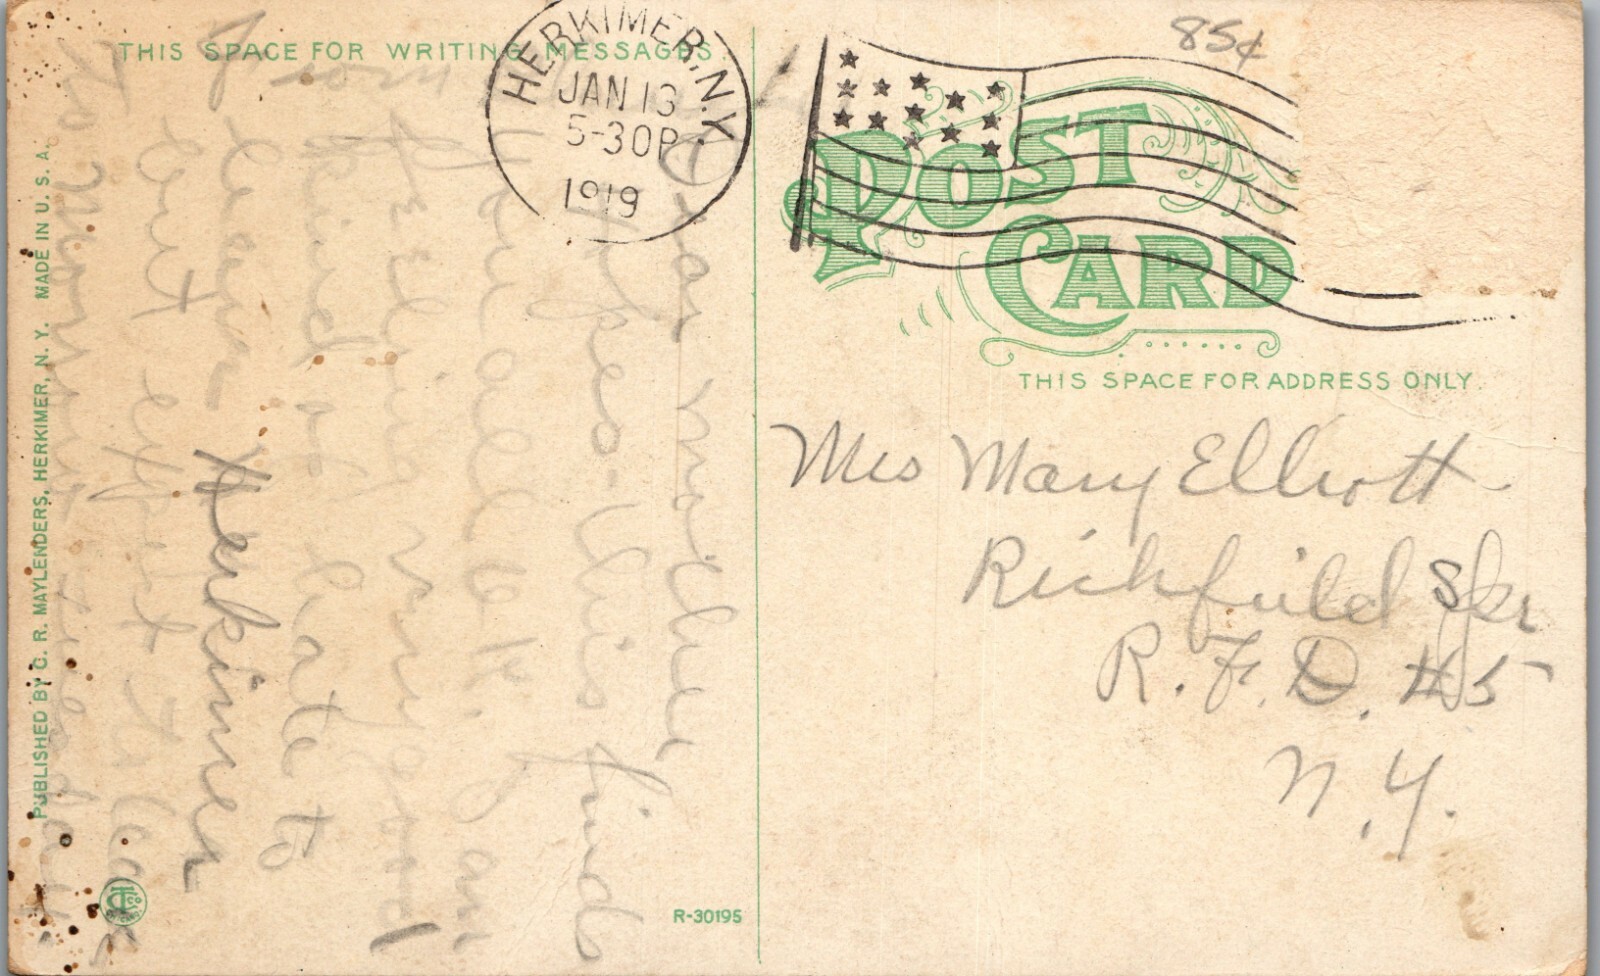 THIS SPACE FOR WRITING MESSAGES
HERKIMER, N.Y.
JAN 13
5-30P
1919
85¢
POST
CARD
THIS SPACE FOR ADDRESS ONLY.
Mrs Mary Elliott
Richfield Spr
R. F. D. #5
N. Y.
Dear mother
Hope this finds
you all O.K. I am
feeling very good
kind of hate to
leave Herkimer
but expect to leave
for
PUBLISHED BY C. R. MAYLENDERS, HERKIMER, N. Y. MADE IN U. S. A.
R-30195